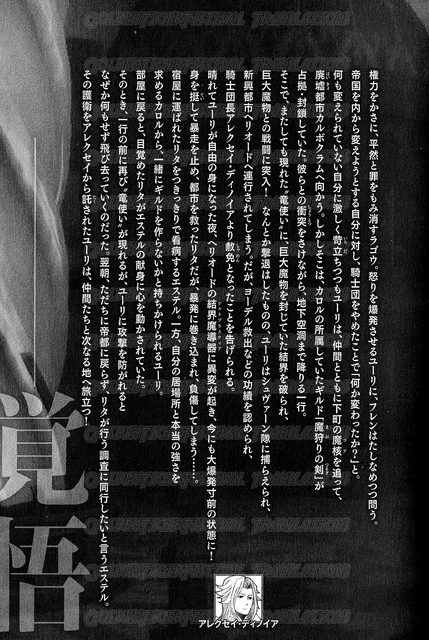 権力をかさに、平然と罪をもみ消すラゴウ。怒りを爆発させるユーリに、フレンはたしなめつつ問う。
帝国を内から変えようとする自分に対し、騎士団をやめたことで“何か変わったか？”と。
何も変えられていない自分に激しく苛立ちつつもユーリは、仲間とともに下町の魔核を追って、
廃墟都市カルボクラムへ向かう。しかしそこは、カロルの所属していたギルド「魔狩りの剣」が
占拠・封鎖していた。彼らとの衝突をさけながら、地下空洞まで降りる一行。
そこで、またしても現れた“竜使い”に、巨大魔物を封じていた結界を破られ、
巨大魔物との戦闘に突入！　なんとか撃退はしたものの、ユーリはシュヴァーン隊に捕らえられ、
新興都市ヘリオードへ連行されてしまう。だが、ヨーデル救出などの功績を認められ、
騎士団長アレクセイ・ディノイアより赦免となったことを告げられる。
晴れてユーリが自由の身になった夜、ヘリオードの結界魔導器に異変が起き、今にも大爆発寸前の状態に！
身を挺して暴走を止め、都市を救ったリタだが、暴発に巻き込まれ、負傷してしまう……。
宿屋に運ばれたリタをつきっきりで看病するエステル。一方、自分の居場所と本当の強さを
求めるカロルから、一緒にギルドを作らないかと持ちかけられるユーリ。
部屋に戻ると、目覚めたリタがエステルの献身に心を動かされていた。
そのとき、一行の前に再び“竜使い”が現れるが、ユーリに攻撃を防がれると
なぜか何もせず飛び去っていくのだった。翌朝、ただちに帝都に戻らず、リタが行う調査に同行したいと言うエステル。
その護衛をアレクセイから託されたユーリは、仲間たちと次なる地へ旅立つ！
覚悟
アレクセイ・ディノイア